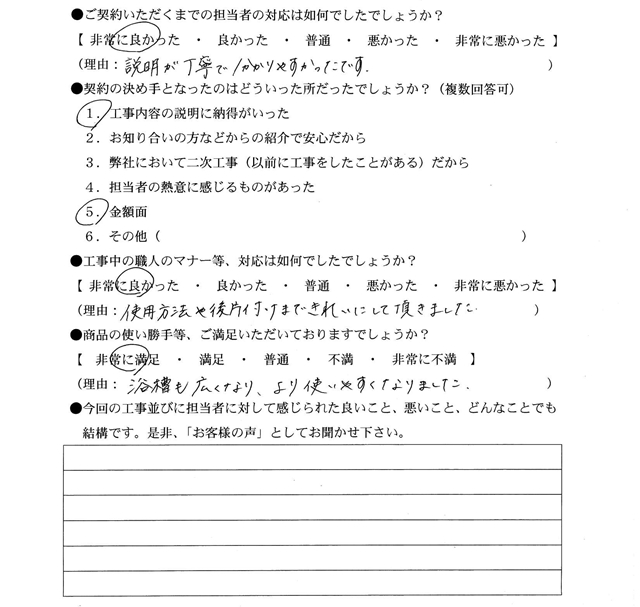 ●ご契約いただくまでの担当者の対応は如何でしたでしょうか？
【 非常に良かった ・ 良かった ・ 普通 ・ 悪かった ・ 非常に悪かった 】
（理由：説明が丁寧で分かりやすかったです. ）
●契約の決め手となったのはどういった所だったでしょうか？（複数回答可）
１．工事内容の説明に納得がいった
２．お知り合いの方などからの紹介で安心だから
３．弊社において二次工事（以前に工事をしたことがある）だから
４．担当者の熱意に感じるものがあった
５．金額面
６．その他（ ）
●工事中の職人のマナー等、対応は如何でしたでしょうか？
【 非常に良かった ・ 良かった ・ 普通 ・ 悪かった ・ 非常に悪かった 】
（理由：使用方法や後片付けまできれいにして頂きました. ）
●商品の使い勝手等、ご満足いただいておりますでしょうか？
【 非常に満足 ・ 満足 ・ 普通 ・ 不満 ・ 非常に不満 】
（理由：浴槽も広くなり、より使いやすくなりました. ）
●今回の工事並びに担当者に対して感じられた良いこと、悪いこと、どんなことでも
結構です。是非、「お客様の声」としてお聞かせ下さい。